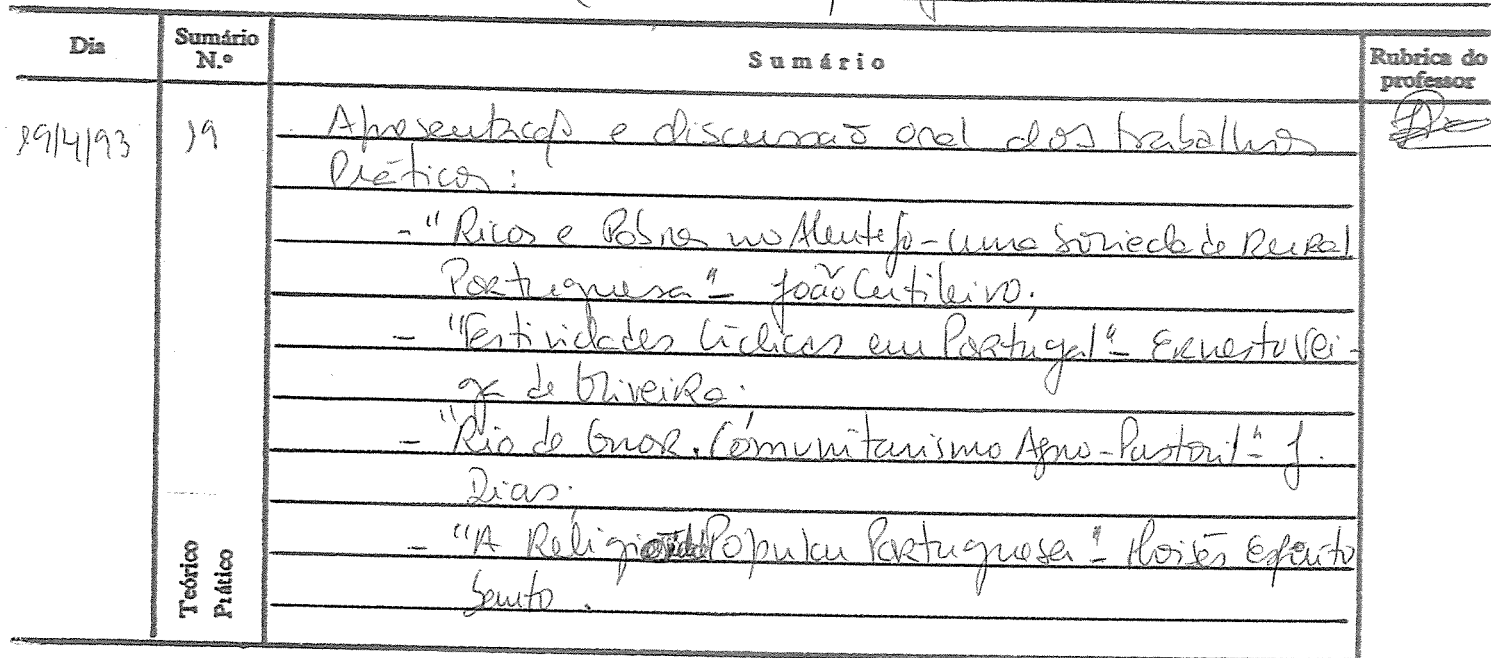 Dia
Sumário N.º
Sumário
Rubrica do professor
19/4/93
19
Apresentação e discussão oral dos trabalhos
Práticos:
- "Ricos e Pobres no Alentejo - uma Sociedade Rural
Portuguesa" - João Cutileiro.
- "Festividades Cíclicas em Portugal" - Ernesto Vei-
ga de Oliveira.
- "Rio de Onor. Comunitarismo Agro-Pastoril" - J.
Dias.
- "A Religião Popular Portuguesa" - Moisés Espírito
Santo.
Teórico
Prático